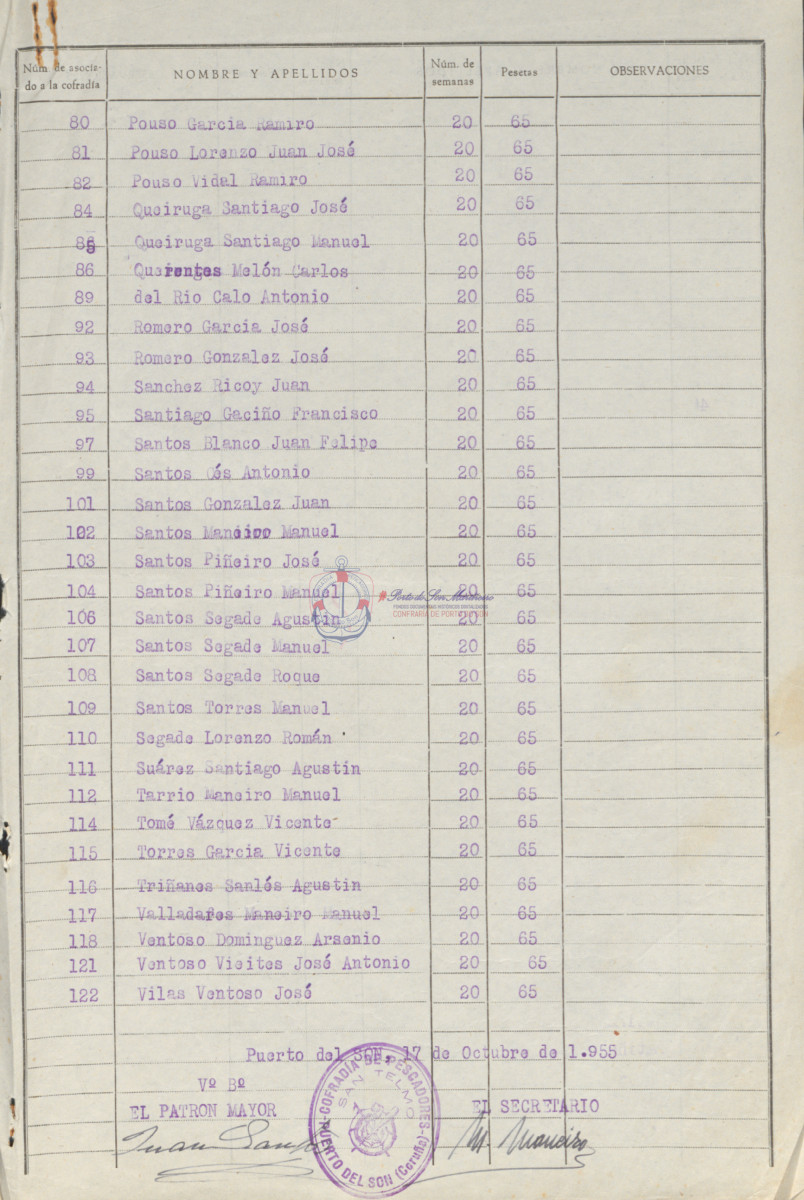 Núm. de asocia-
do a la cofradía
NOMBRE Y APELLIDOS
Núm. de
semanas
Pesetas
OBSERVACIONES
80 Pouso Garcia Ramiro 20 65
81 Pouso Lorenzo Juan José 20 65
82 Pouso Vidal Ramiro 20 65
84 Queiruga Santiago José 20 65
85 Queiruga Santiago Manuel 20 65
86 Querentes Melón Carlos 20 65
89 del Rio Calo Antonio 20 65
92 Romero Garcia José 20 65
93 Romero Gonzalez José 20 65
94 Sanchez Ricoy Juan 20 65
95 Santiago Gaciño Francisco 20 65
97 Santos Blanco Juan Felipe 20 65
99 Santos Cés Antonio 20 65
101 Santos Gonzalez Juan 20 65
102 Santos Maneiro Manuel 20 65
103 Santos Piñeiro José 20 65
104 Santos Piñeiro Manuel 20 65
106 Santos Segade Agustin 20 65
107 Santos Segade Manuel 20 65
108 Santos Segade Roque 20 65
109 Santos Torres Manuel 20 65
110 Segade Lorenzo Román 20 65
111 Suárez Santiago Agustin 20 65
112 Tarrio Maneiro Manuel 20 65
114 Tomé Vázquez Vicente 20 65
115 Torres Garcia Vicente 20 65
116 Triñanes Sanlés Agustin 20 65
117 Valladares Maneiro Manuel 20 65
118 Ventoso Dominguez Arsenio 20 65
121 Ventoso Vieites José Antonio 20 65
122 Vilas Ventoso José 20 65
#Porto do Son Mariñeiro
CONFRARÍA DE PORTO DO SON
Puerto del SON, 17 de Octubre de 1.955
Vº Bº
EL PATRON MAYOR
EL SECRETARIO
COFRADÍA DE PESCADORES
SAN TELMO
PUERTO DEL SON (Coruña)
Juan
M. Maneiro